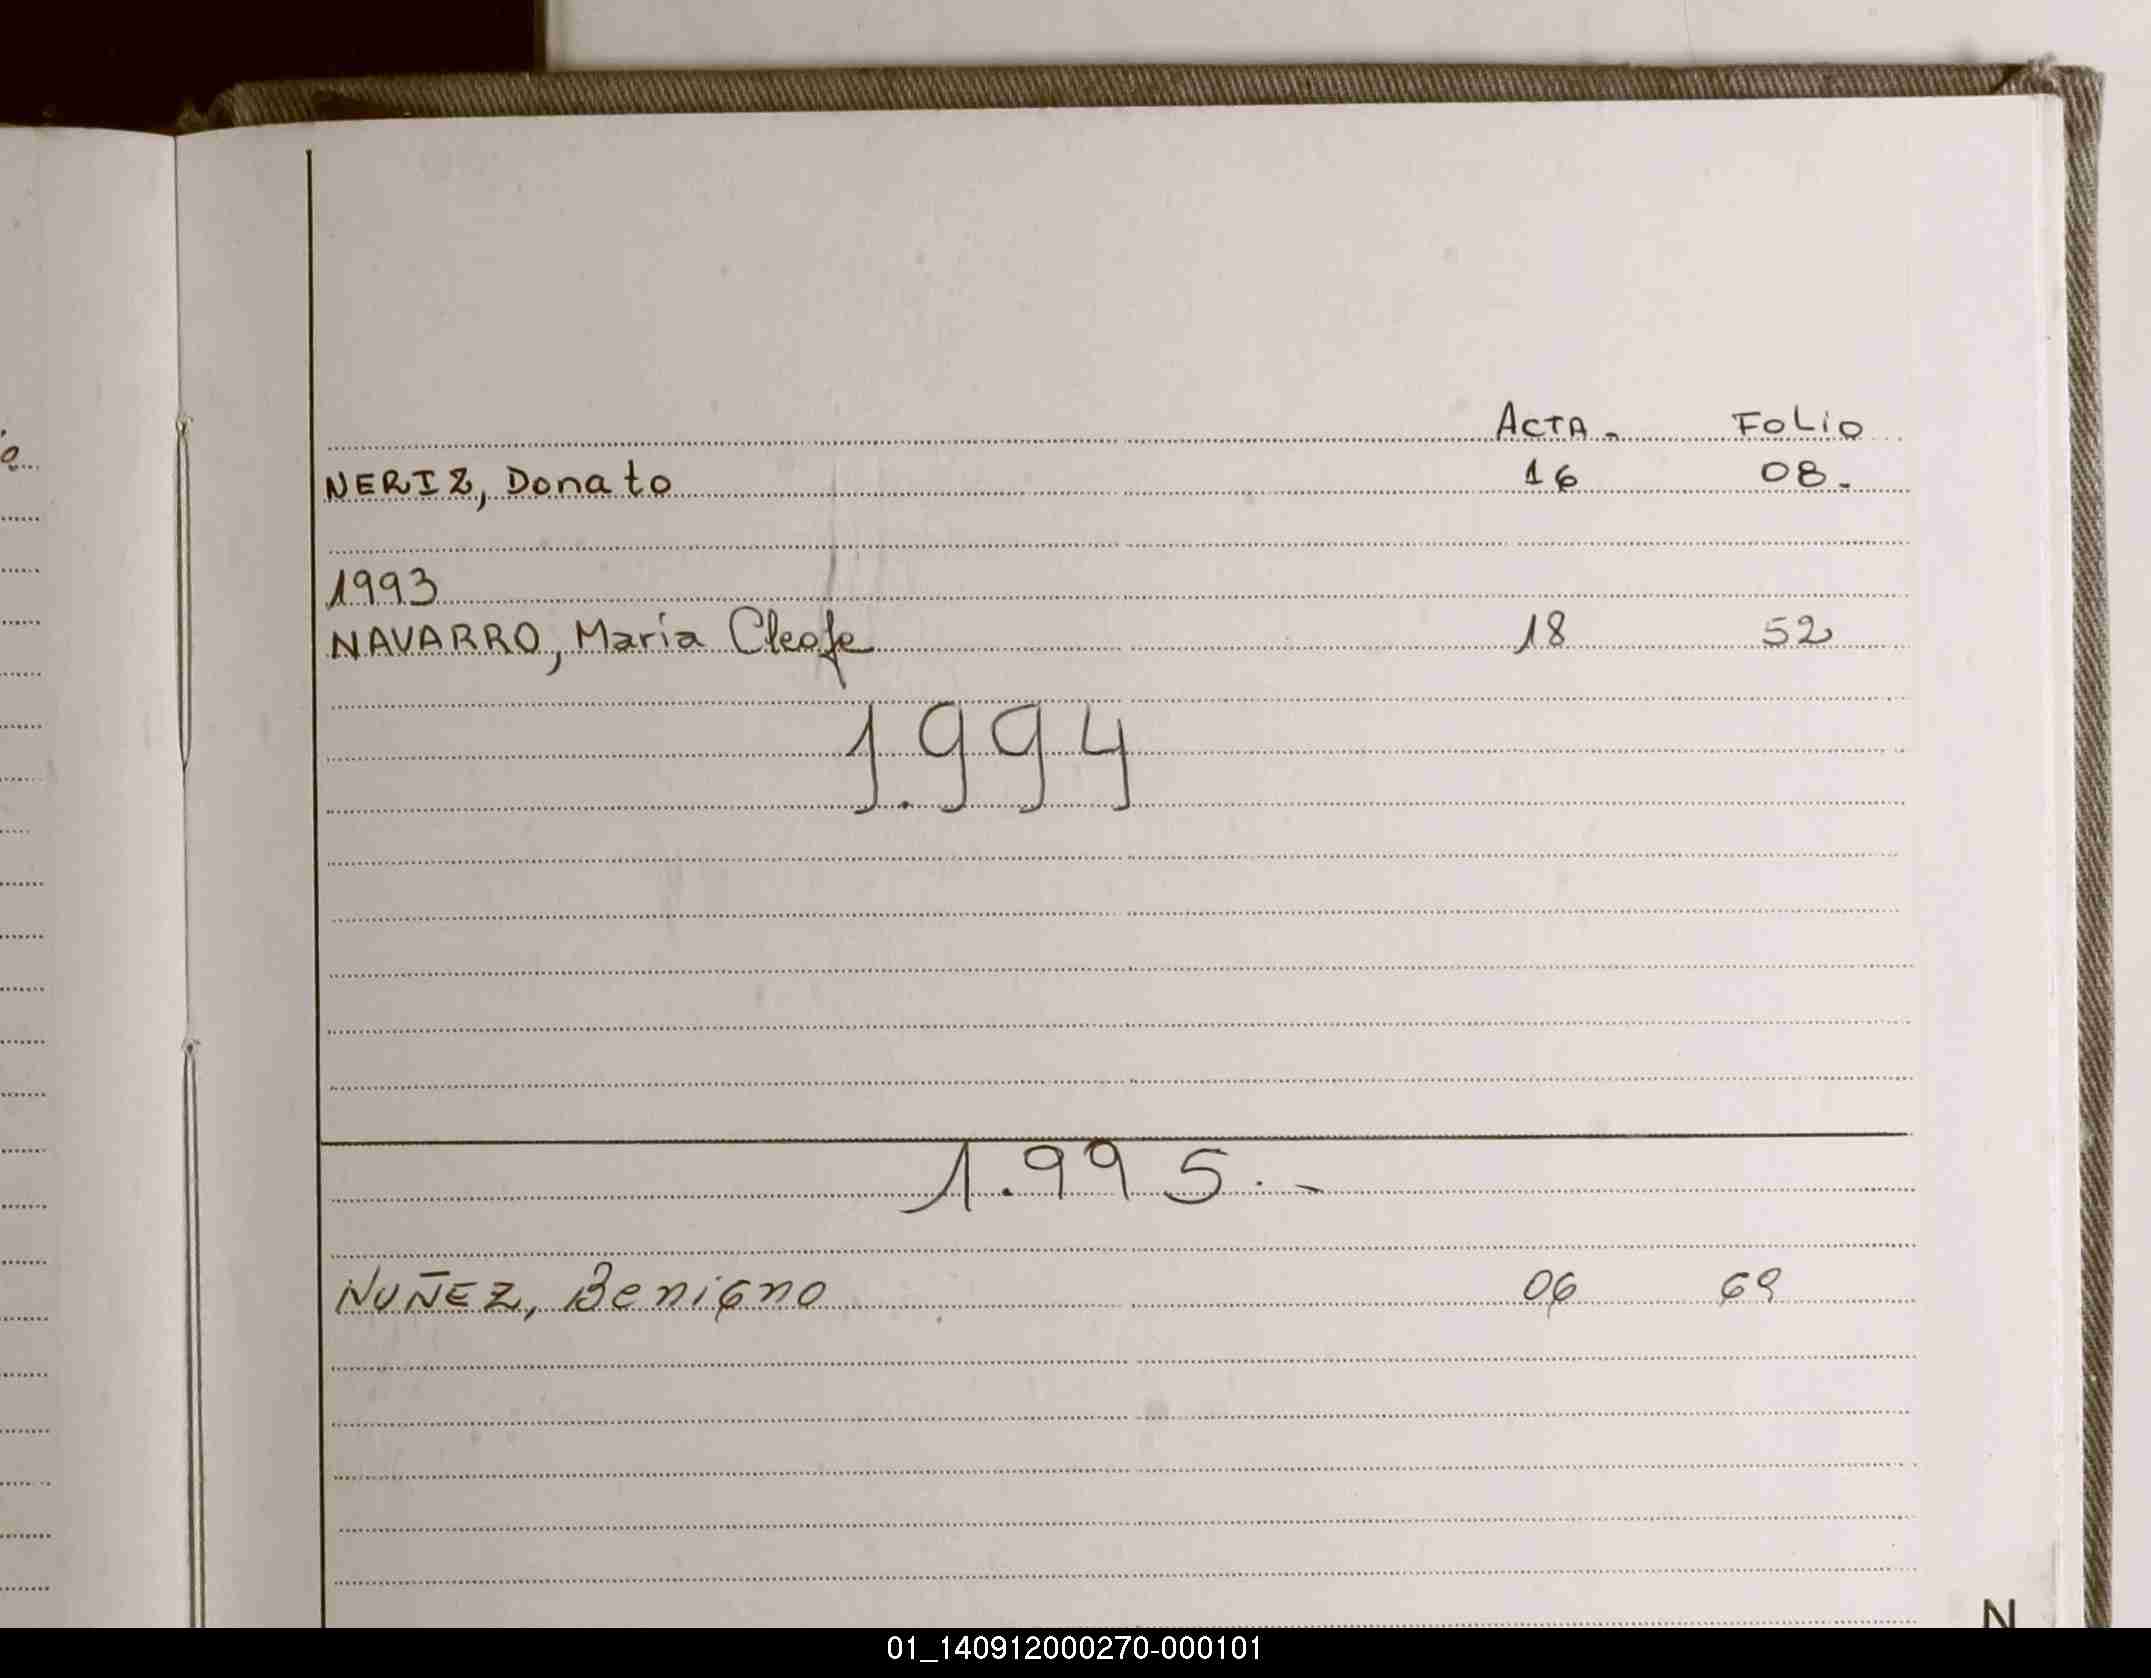 ACTA. FOLIO
NERIZ, Donato 16 08.
1993
NAVARRO, Maria Cleofe 18 52
1.994
1.995.-
NUÑEZ, Benigno 06 69
N
01_140912000270-000101